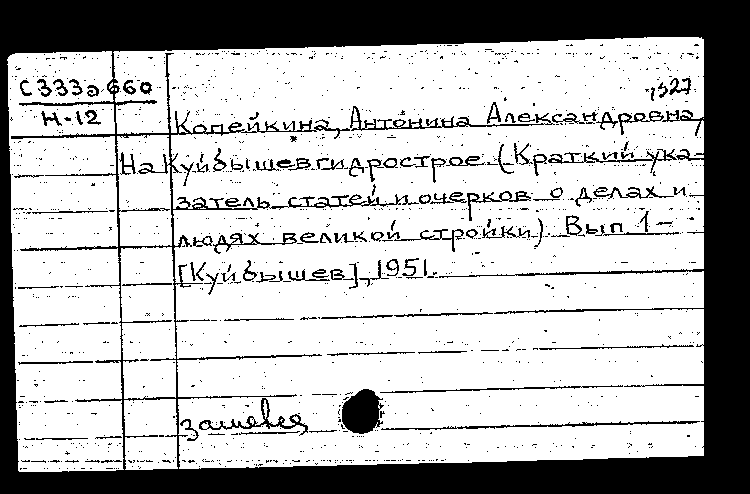 С333э660
Н-12
Копейкина, Антонина Александровна,
На Куйбышевгидрострое. (Краткий ука-
затель статей и очерков о делах и
людях великой стройки). Вып 1-
[Куйбышев], 1951.